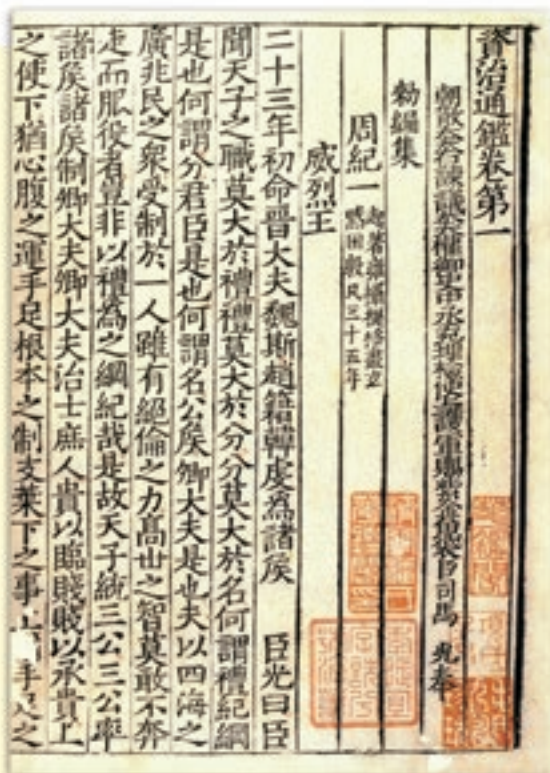 資治通鑑卷第一
朝散大夫右諫議大夫權御史中丞充理檢使上護軍賜紫金魚袋臣司馬 光奉
勑編集
周紀一 起著雍攝提格盡玄
黓困敦凡三十五年
威烈王
二十三年初命晉大夫魏斯趙籍韓虔為諸侯 臣光曰臣
聞天子之職莫大於禮禮莫大於分分莫大於名何謂禮紀綱
是也何謂分君臣是也何謂名公侯卿大夫是也夫以四海之
廣兆民之衆受制於一人雖有絕倫之力髙世之智莫敢不奔
走而服役者豈非以禮為之綱紀哉是故天子統三公三公率
諸侯諸侯制卿大夫卿大夫治士庶人貴以臨賤賤以承貴上
之使下猶心腹之運手足根本之制支葉下之事上 手足之